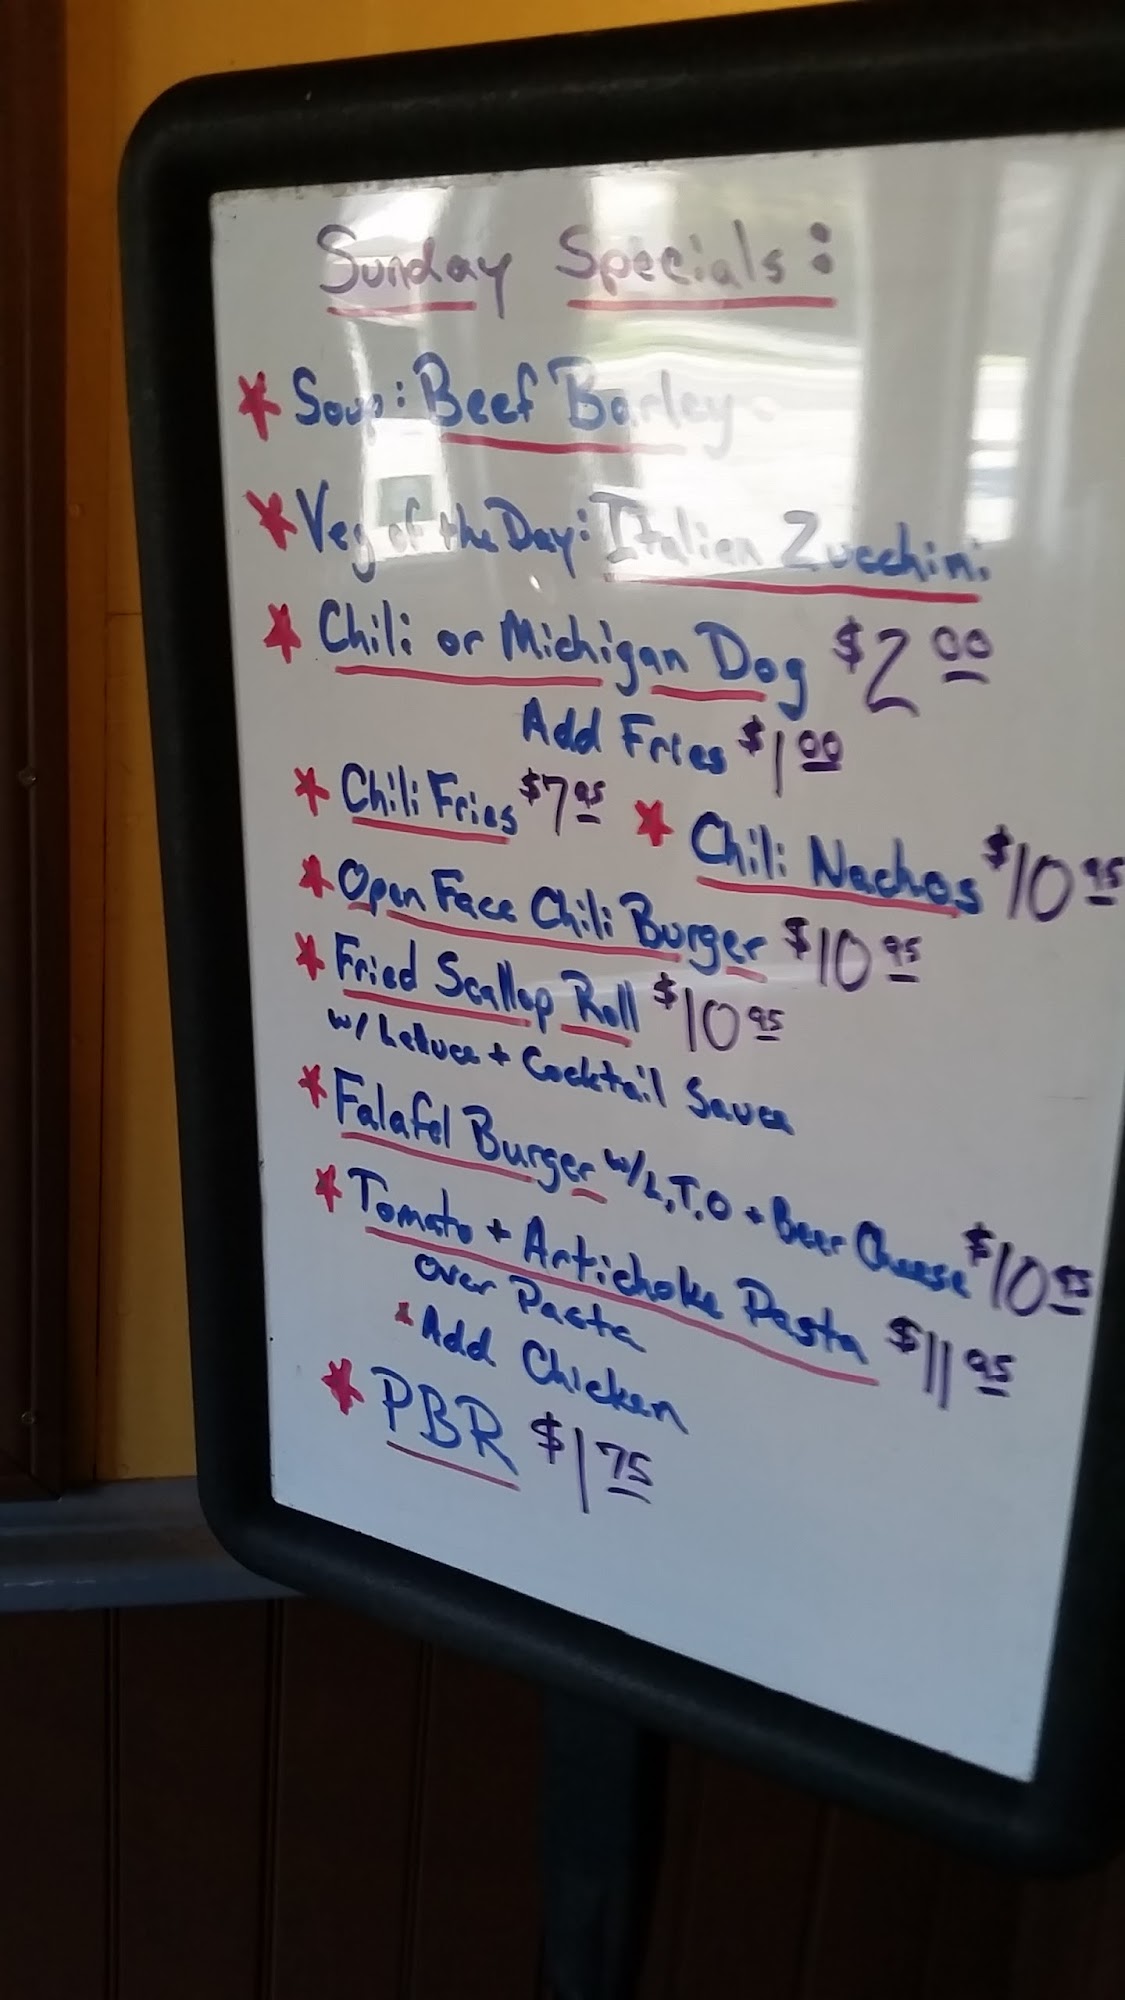 Sunday Specials:
* Soup: Beef Barley
* Veg of the Day: Italian Zucchini
* Chili or Michigan Dog $2.00
Add Fries $1.00
* Chili Fries $7.95 * Chili Nachos $10.95
* Open Face Chili Burger $10.95
* Fried Scallop Roll $10.95
w/ Lettuce + Cocktail Sauce
* Falafel Burger w/ L,T,O + Beer Cheese $10.95
* Tomato + Artichoke Pasta $11.95
over Pasta
* Add Chicken
* PBR $1.75